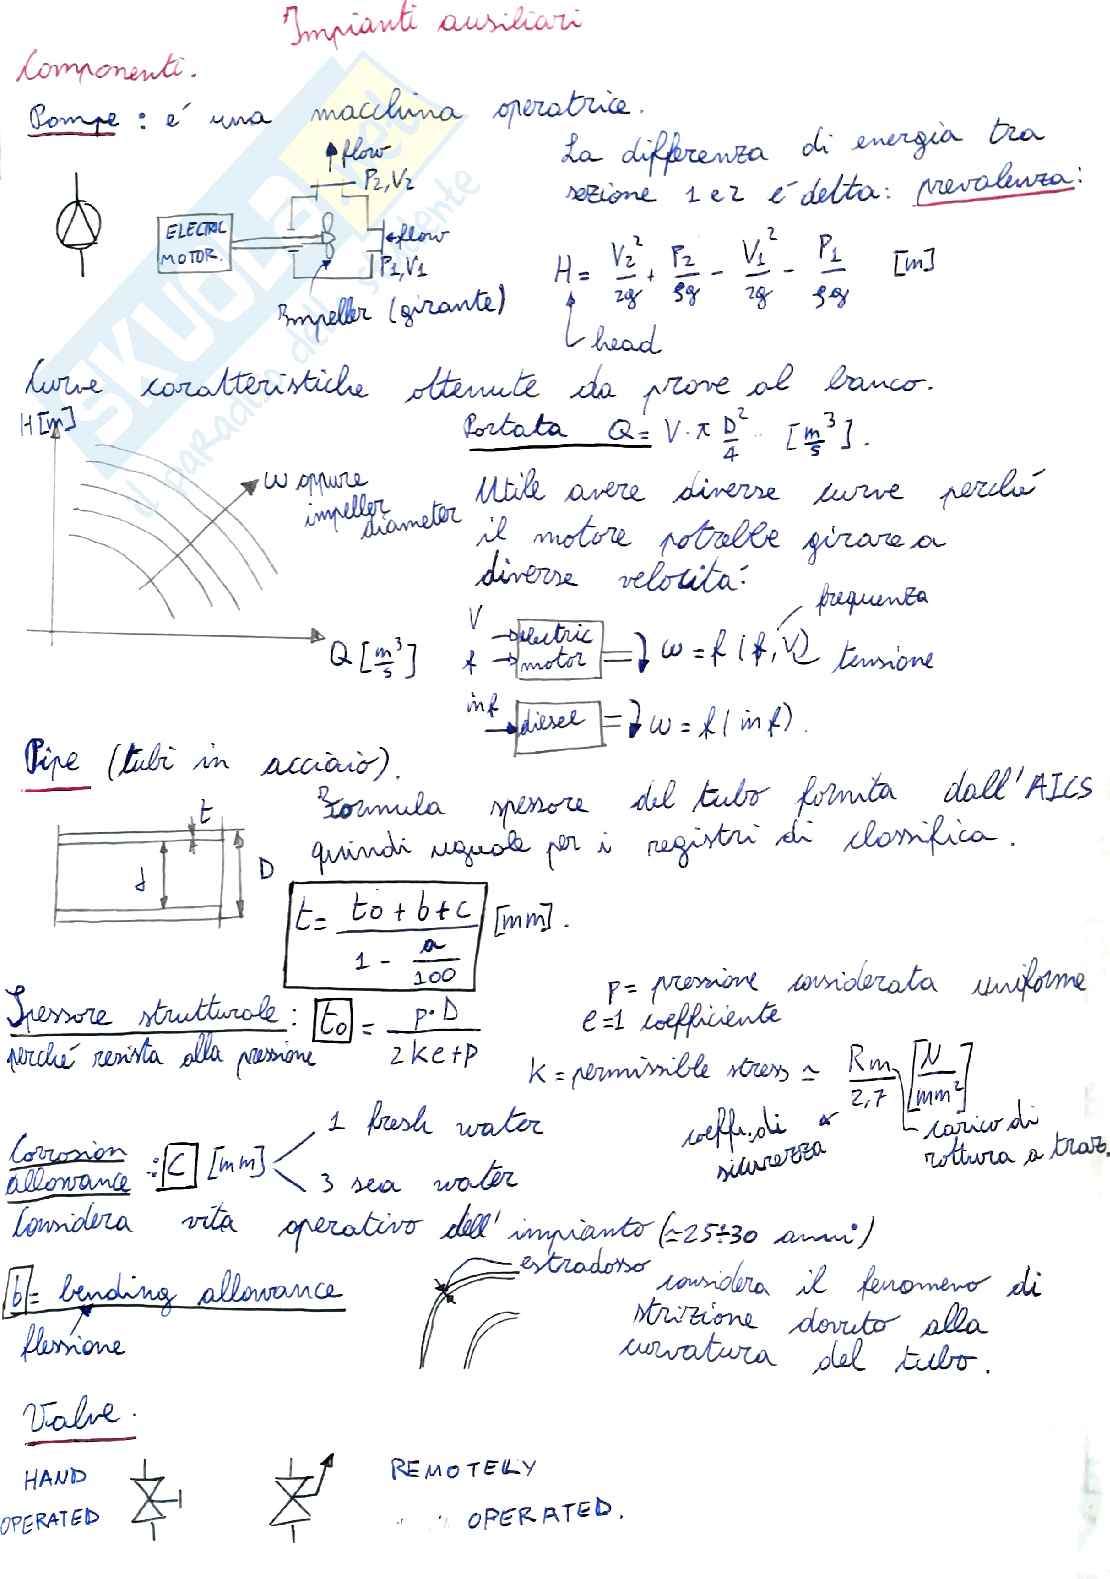 Impianti ausiliari
Componenti.
Pompe : é una macchina operatrice.
flow
P2,V2
ELECTRIC MOTOR.
flow
P1,V1
Impeller (girante)
La differenza di energia tra
sezione 1 e 2 é detta: prevalenza:
H = V2²/2g + P2/ρg - V1²/2g - P1/ρg [m]
head
Curve caratteristiche ottenute da prove al banco.
H[m]
ω oppure
impeller
diameter
Q [m³/s]
Portata Q = V·π D²/4 [m³/s].
Utile avere diverse curve perché
il motore potrebbe girare a
diverse velocitá:
frequenza
V
f
electric motor
ω = f (f, V)
tensione
inf
diesel
ω = f (inf).
Pipe (tubi in acciaio).
t
d
D
Formula spessore del tubo fornita dall'AICS
quindi uguale per i registri di classifica.
t = (to + b + c) / (1 - a/100) [mm].
Spessore strutturale : to = p·D / (2ke+p)
perché resista alla pressione
p = pressione considerata uniforme
e=1 coefficiente
k = permissible stress ≃ Rm/2,7 [N/mm²]
coeff. di
sicurezza
carico di
rottura a traz.
Corrosion
allowance : C [mm]
1 fresh water
3 sea water
Considera vita operativo dell'impianto (≃25÷30 anni)
b = bending allowance
flessione
estradosso
considera il fenomeno di
strizione dovuto alla
curvatura del tubo.
Valve.
HAND
OPERATED
REMOTELY
OPERATED.
SKUOLA.net
il paradiso dello studente